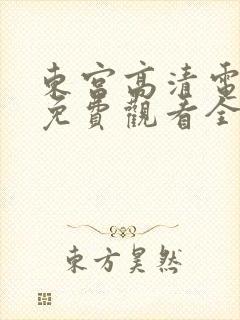 東宮高清電
免費觀看全
東方昊然